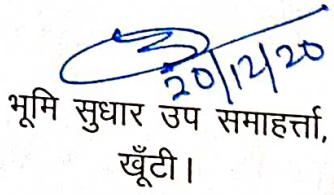 20/12/20
भूमि सुधार उप समाहर्त्ता,
खूँटी।